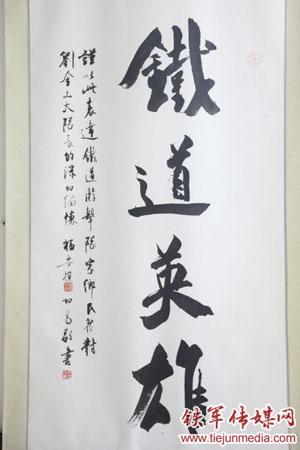 鐵道英雄
謹以此表達鐵道游擊隊家鄉民衆對
劉金山大隊長的深切緬懷
敬書
铁军传媒网
www.tiejunmedia.com